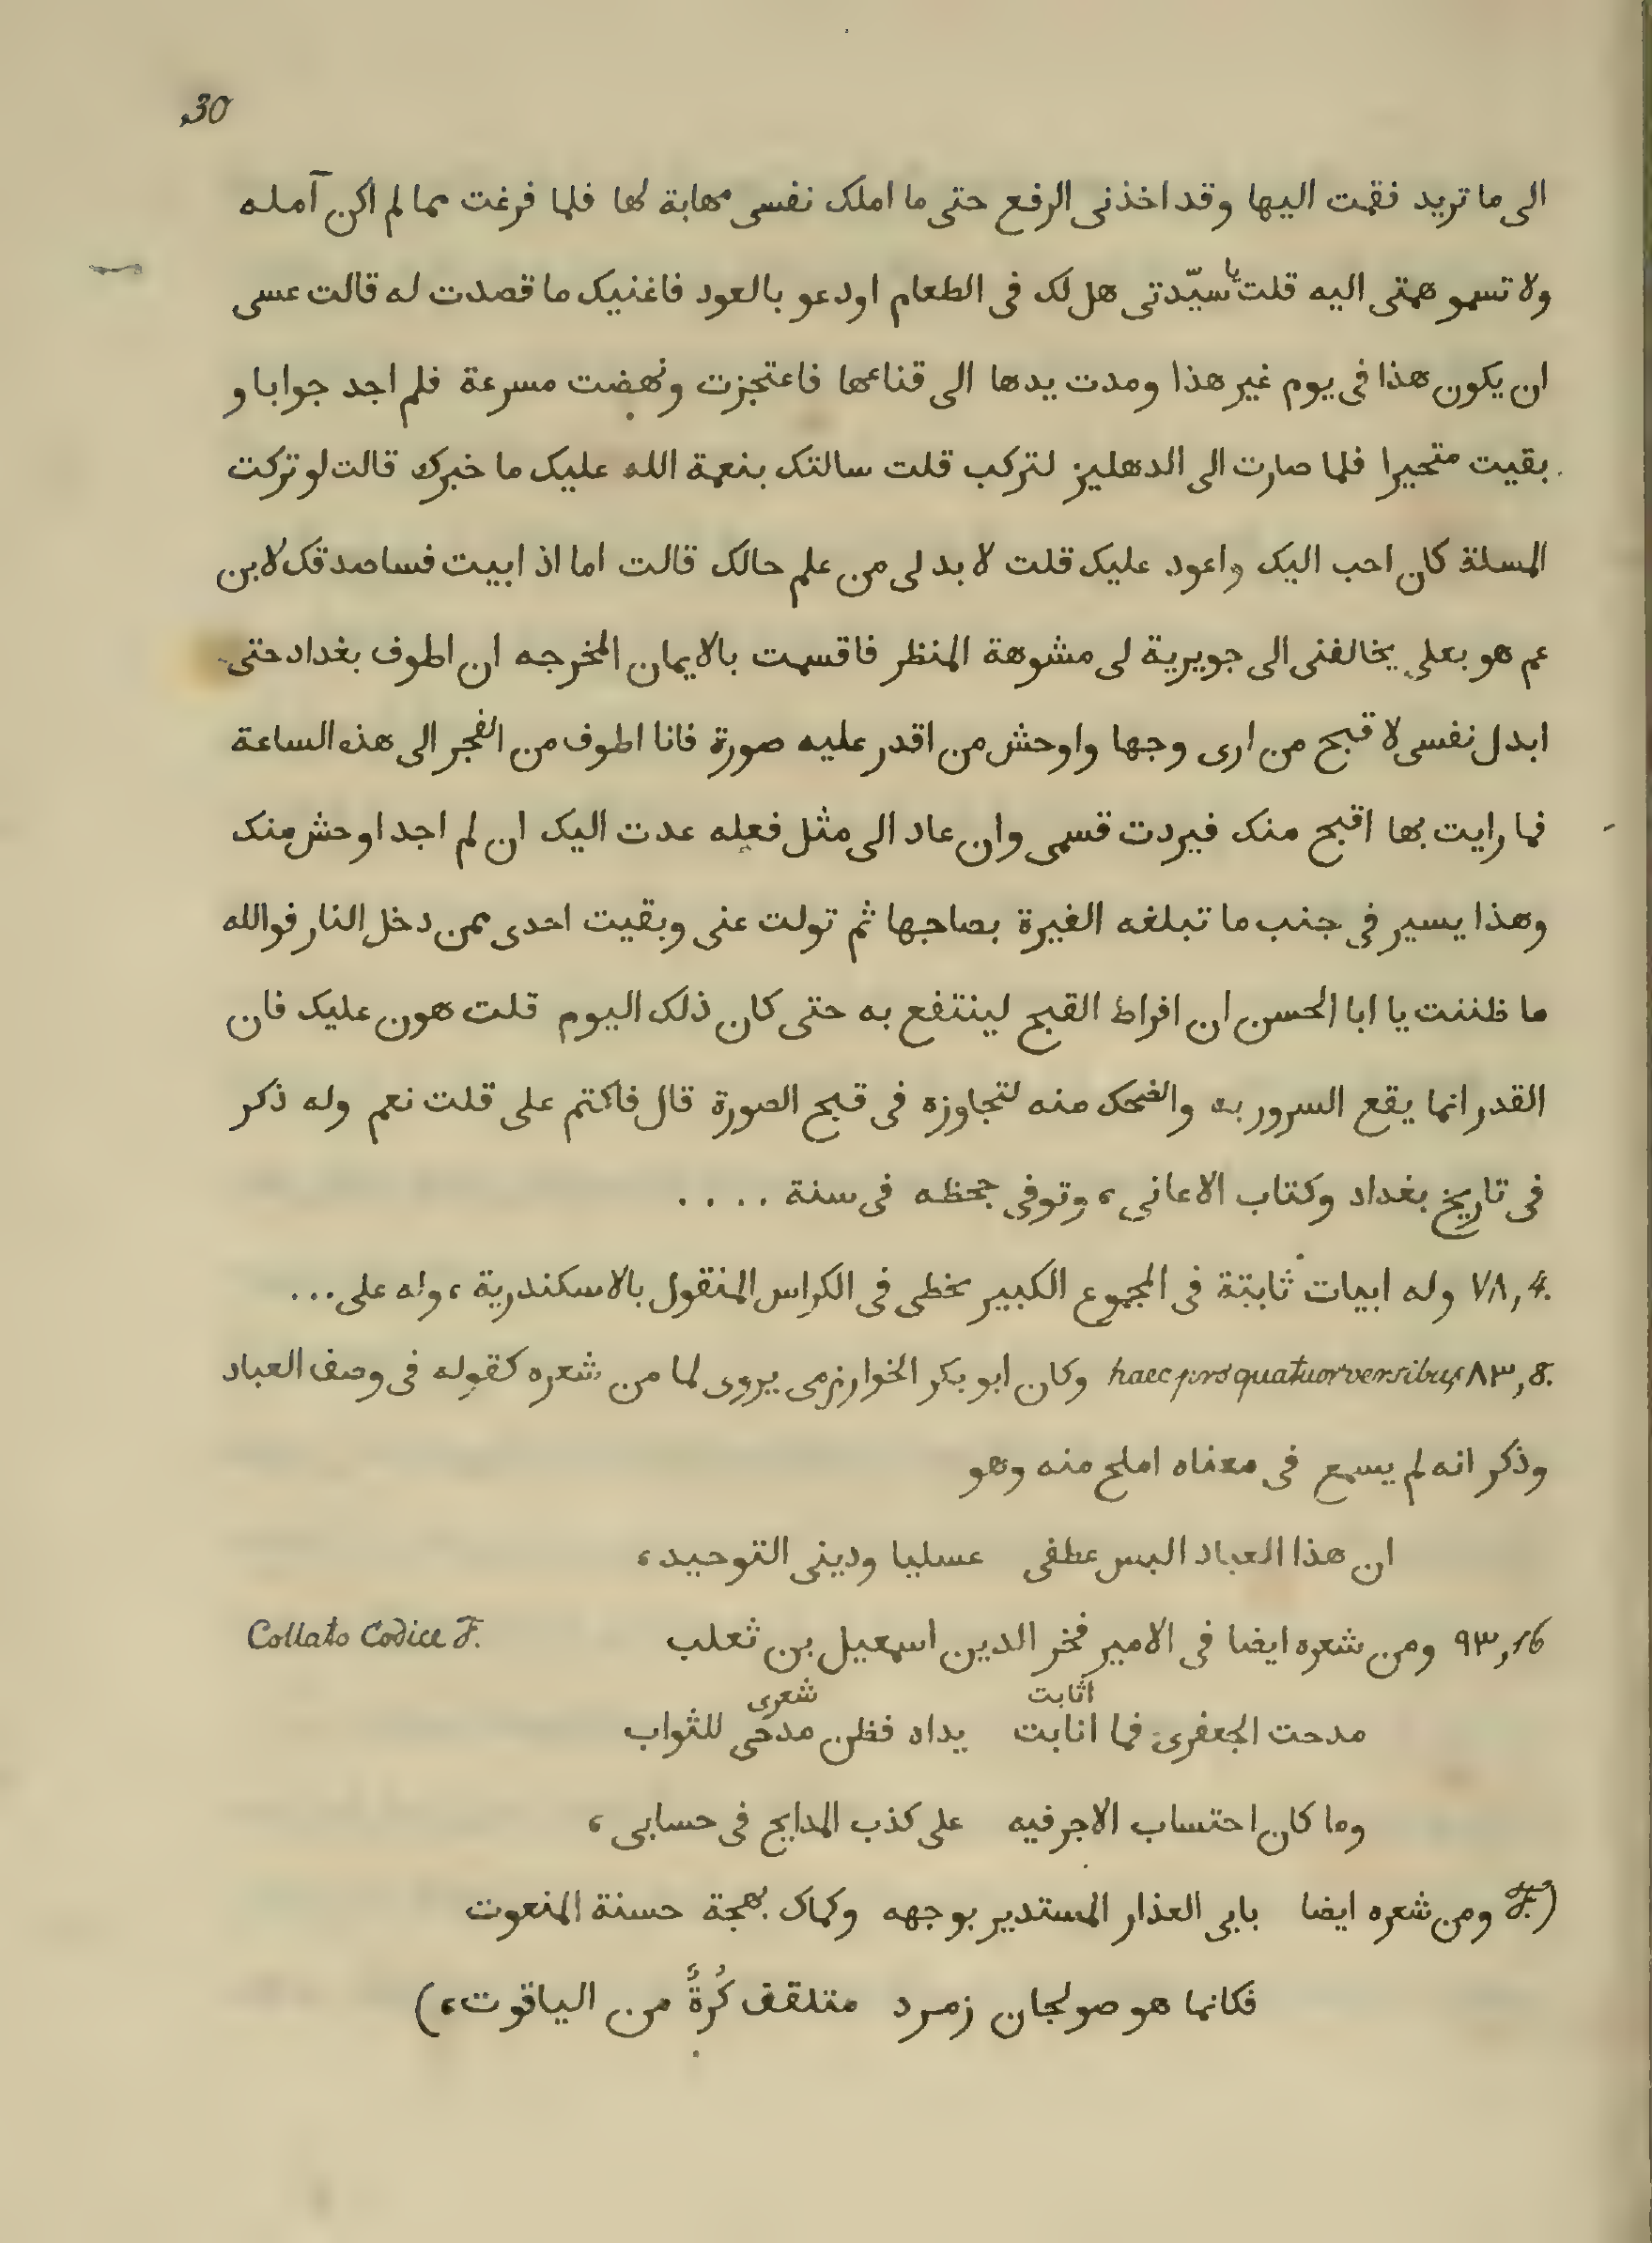 30
الى ما تريد فقمت اليها وقد اخذنى الرفع حتى ما املك نفسى مهابة لها فلما فرغت مما لم اكن آمله
ولا تسمو همتى اليه قلت يا سيّدتى هل لك فى الطعام او دعو بالعود فاغنيك ما قصدت له قالت عسى
ان يكون هذا فى يوم غير هذا ومدت يدها الى قناعها فاعتجزت ونهضت مسرعة فلم اجد جوابا و
بقيت متحيرا فلما صارت الى الدهليز لتركب قلت سالتك بنعمة الله عليك ما خبرك قالت لو تركت
المسلة كان احب اليك واعود عليك قلت لا بد لى من علم حالك قالت اما اذ ابيت فساصدقك لابن
عم هو بعلى يخالفنى الى جويرية لى مشوهة المنظر فاقسمت بالايمان المخرجه ان اطوف بغداد حتى
ابدل نفسى لا قبح من ارى وجها واوحش من اقدر عليه صورة فانا اطوف من الفجر الى هذه الساعة
فما رايت بها اقبح منك فيردت قسمى وان عاد الى مثل فعله عدت اليك ان لم اجد اوحش منك
وهذا يسير فى جنب ما تبلغه الغيرة بصاحبها ثم تولت عنى وبقيت احدى ممن دخل النار فوالله
ما ظننت يا ابا الحسن ان افراط القبح لينتفع به حتى كان ذلك اليوم قلت هون عليك فان
القدر انما يقع السرور به والضحك منه لتجاوزه فى قبح الصورة قال فاكتم على قلت نعم وله ذكر
فى تاريخ بغداد وكتاب الاعانى، وتوفى جحظه فى سنة ....
٧٨,4. وله ابيات ثابتة فى المجموع الكبير بخطى فى الكراس المنقول بالاسكندرية، وله على...
٨٣,8. haec prs quatuor versibus وكان ابو بكر الخوارزمى يروى لما من شعره كقوله فى وصف العباد
وذكر انه لم يسمع فى معناه املح منه وهو
ان هذا العباد البس عطفى عسليا ودينى التوحيد،
٩٣,16 ومن شعره ايضا فى الامير فخر الدين اسمعيل بن ثعلب Collato Codice F.
اثابت شعرى
مدحت الجعفرى فما انابت يداه فظن مدحى للثواب
وما كان احتساب الاجر فيه على كذب المدايح فى حسابى،
(F. ومن شعره ايضا بابى العذار المستدير بوجهه وكماك بهجة حسنة المنعوت
فكانما هو صولجان زمرد متلقف كُرةٌ من الياقوت،)